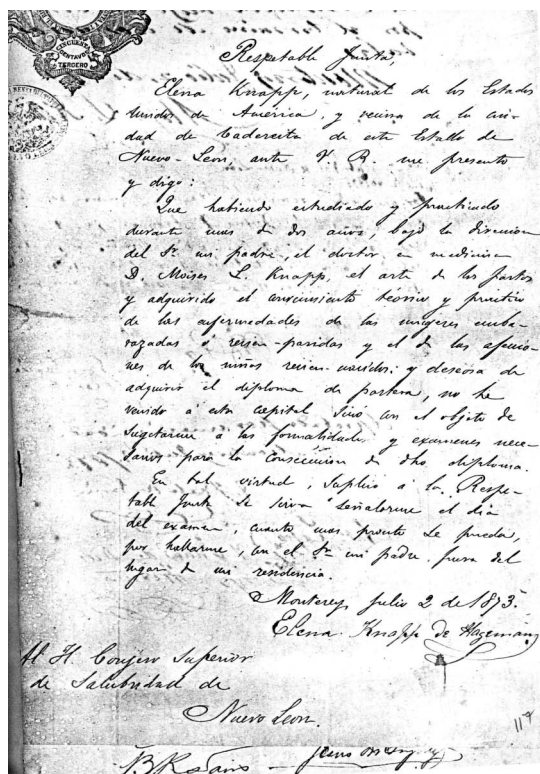 CINCUENTA
CENTAVOS
TERCERO
Respetable Junta,
Elena Knapp, natural de los Estados
Unidos de America, y vecina de la ciu-
dad de Cadereita de este Estado de
Nuevo-Leon, ante V. R. me presento
y digo:
Que habiendo estudiado y practicado
durante mas de dos años, bajo la direccion
del Sr. mi padre, el doctor en medicina
D. Moises L. Knapp, el arte de los partos
y adquirido el conocimiento teorico y practico
de las enfermedades de las mugeres emba-
razadas ó recien-paridas y el de las afeccio-
nes de los niños recien nacidos; y deseosa de
adquirir el diploma de partera, no he
venido á esta capital sinó con el objeto de
sugetarme a las formalidades y examenes nece-
sarios para la consecucion de dho. diploma.
En tal virtud, suplico á la Respe-
table Junta se sirva señalarme el dia
del examen, cuanto mas pronto se pueda,
por hallarme, con el Sr. mi padre, fuera del
lugar de mi residencia.
Monterey Julio 2 de 1873.
Elena Knapp de Hageman
Al H. Consejo Superior
de Salubridad de
Nuevo Leon.
117